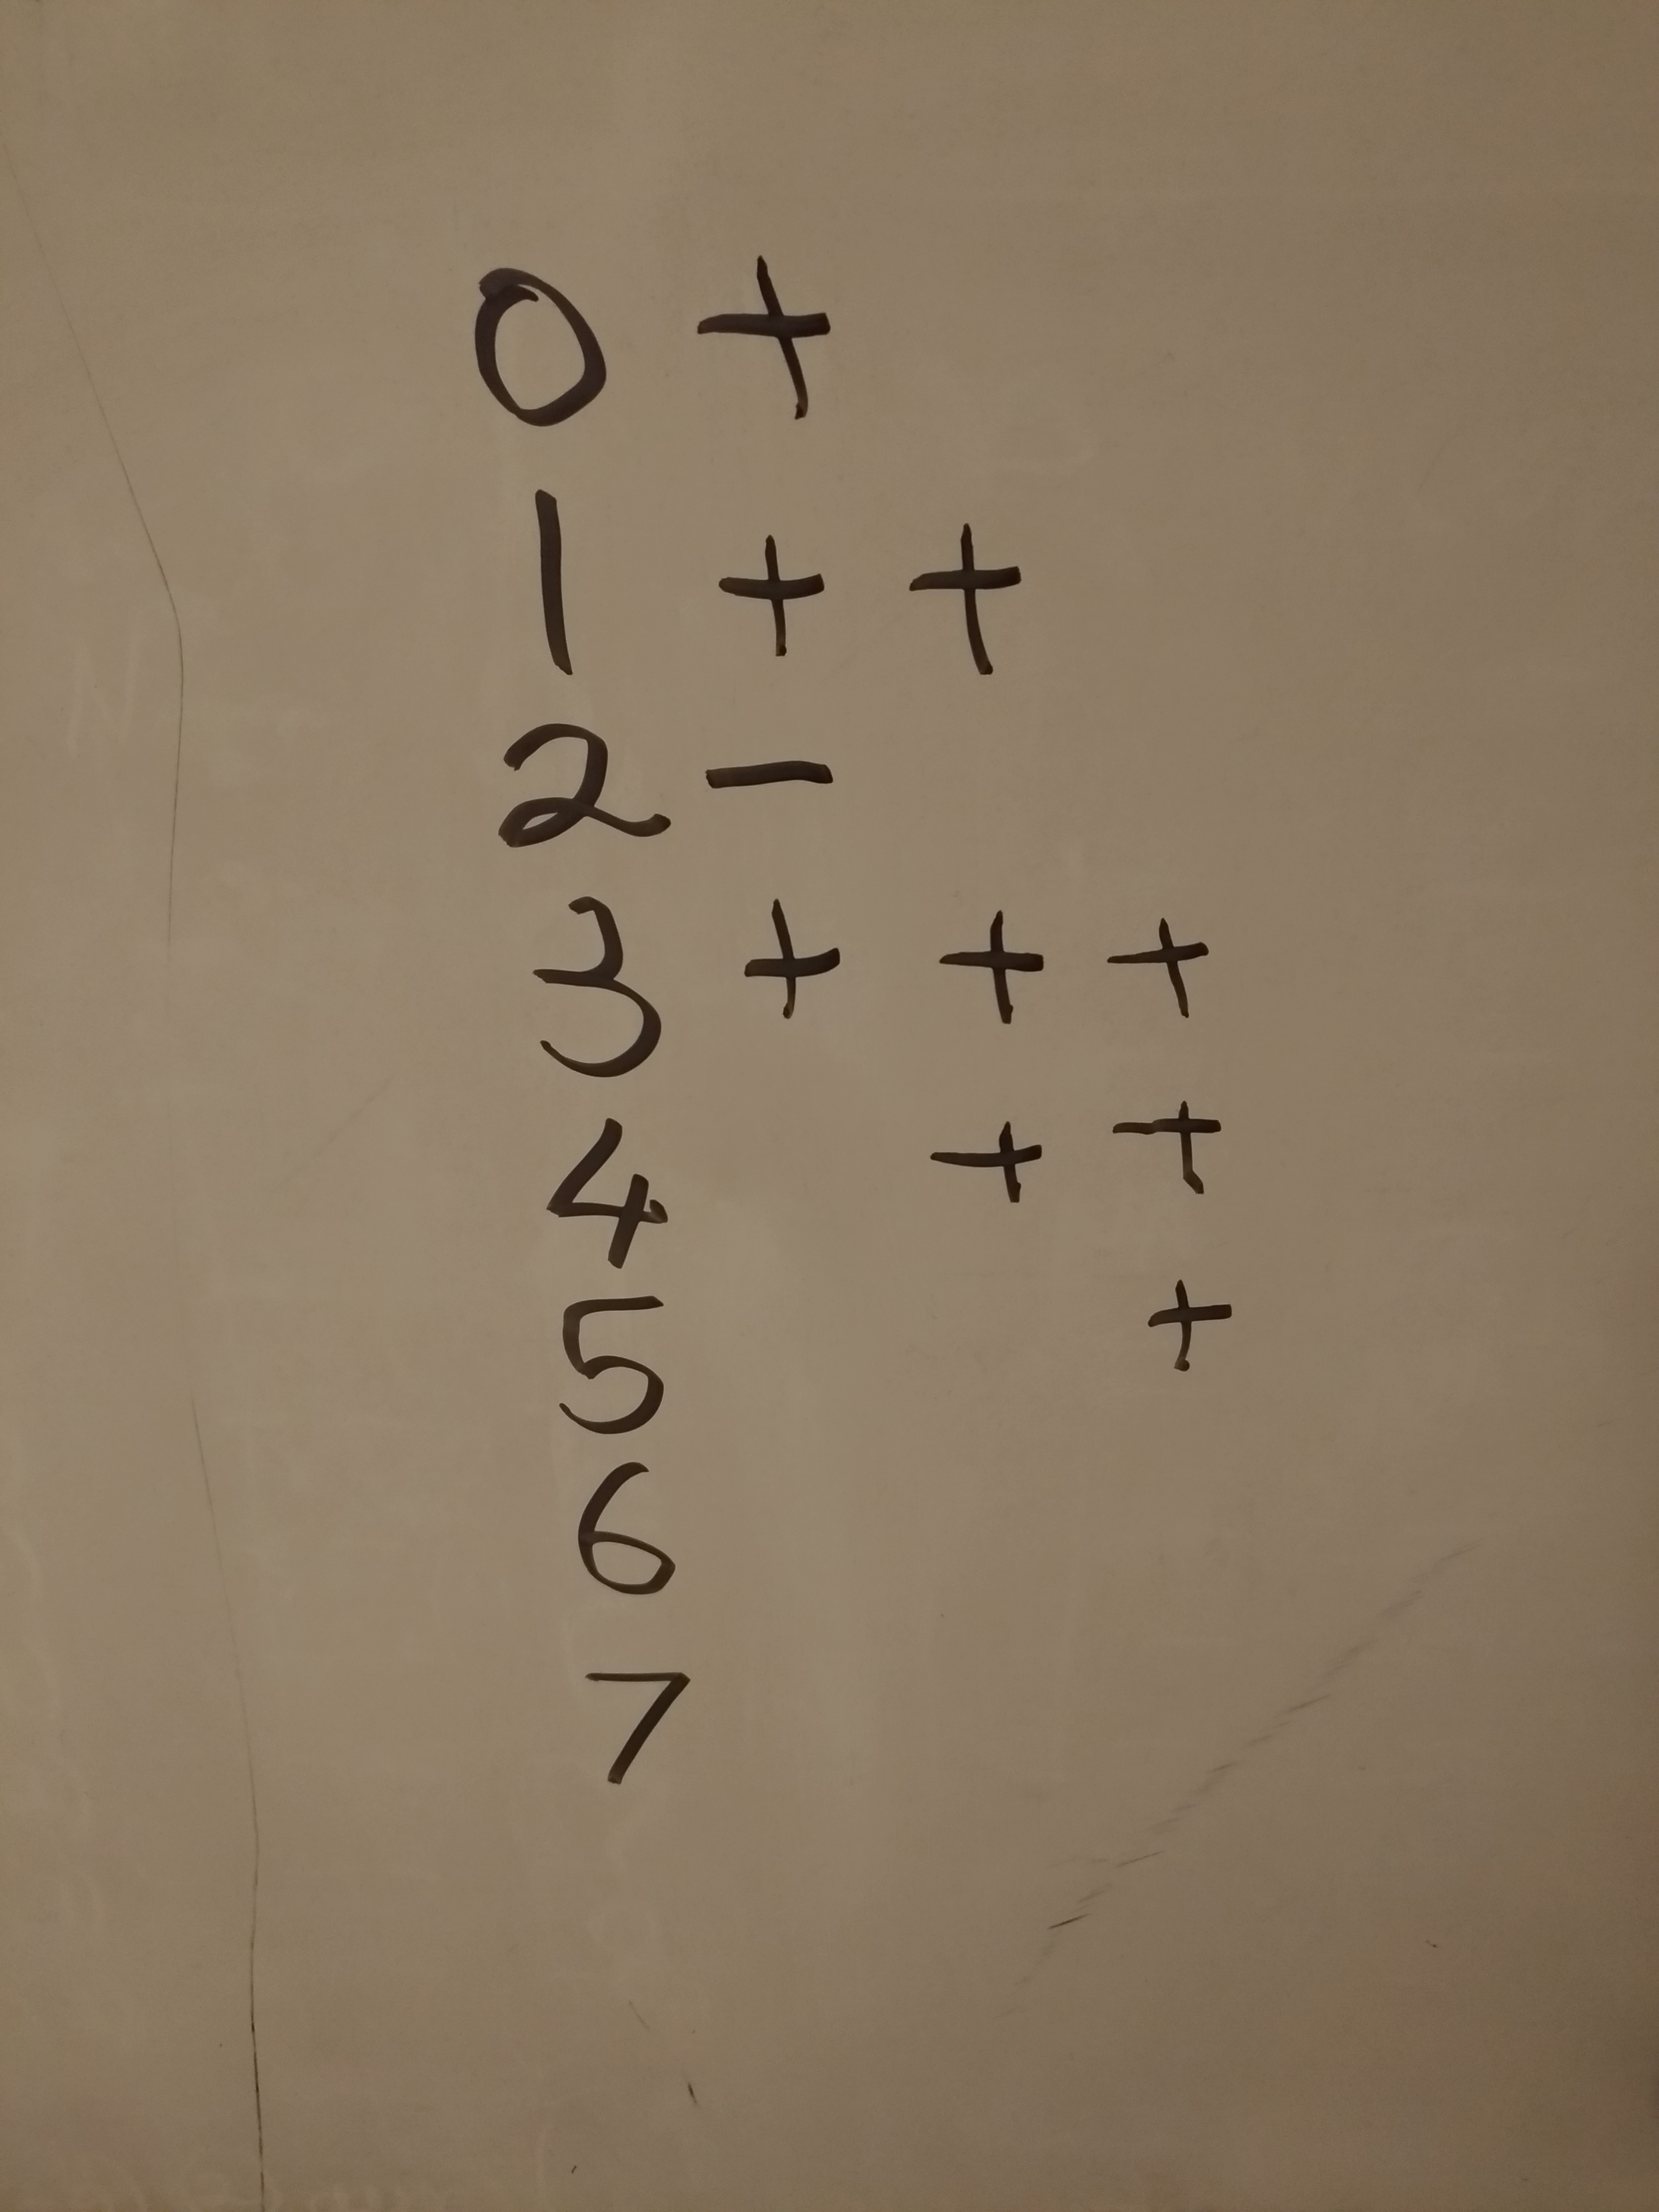 0 +
1 + +
2 -
3 + + +
4 + +
5 +
6
7